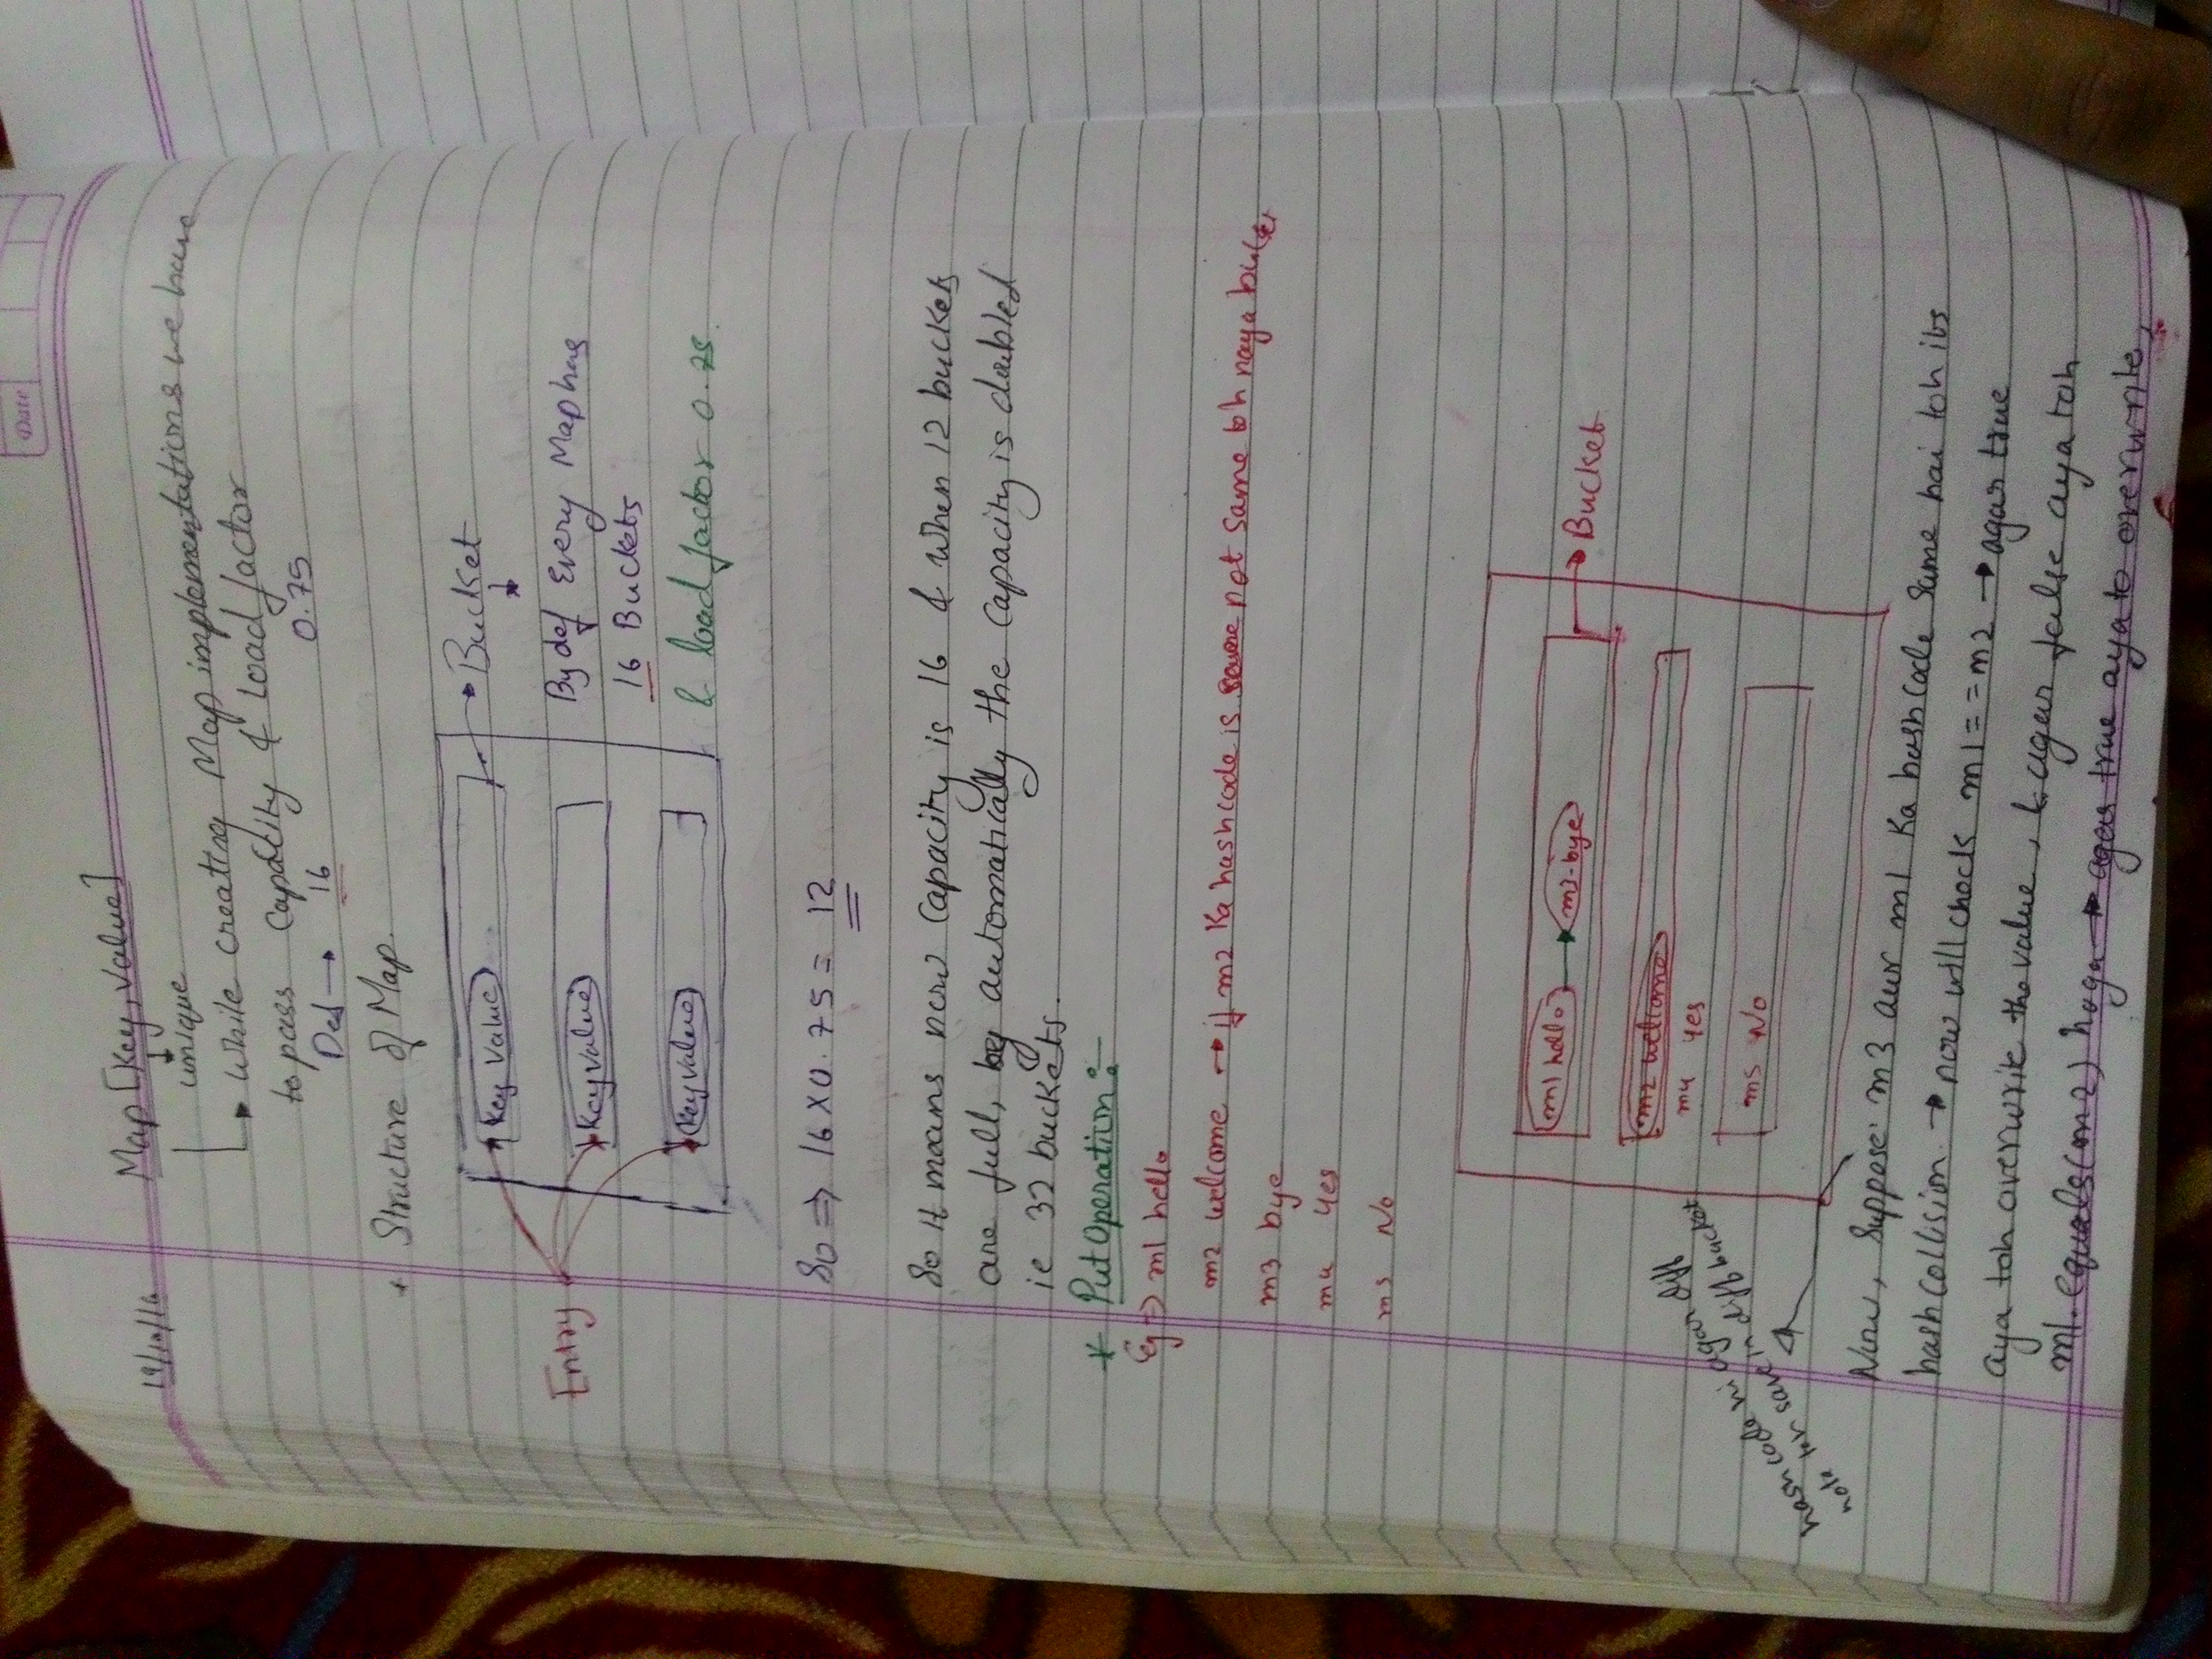 Date
19/10/16
Map [Key, Value]
unique
While creating Map implementations we have
to pass Capacity & load factor
Def → 16 0.75
* Structure of Map.
Key Value → Bucket
Entry
Key Value
By def Every Map has
16 Buckets
Key Value
& load factor 0.75.
So ⇒ 16 X 0.75 = 12
So it means now Capacity is 16 & when 12 buckets
are full, by automatically the capacity is doubled
ie 32 buckets.
* Put Operation :-
Eg ⇒ m1 hello
m2 welcome → if m2 Ka hashcode is same not same toh naya bucket
m3 bye
m4 Yes
m5 No
m1 hello → m3 bye → Bucket
m2 welcome
m4 yes
m5 No
hash code hi agar diff
hota toh save in diff bucket
Now, Suppose m3 aur m1 Ka hash code Same hai toh its
hash collision. → now will check m1 == m2 → agar true
aya toh overwrite the value, & agar false aya toh
m1.equals(m2) hoga → agar true aya to overwrite,